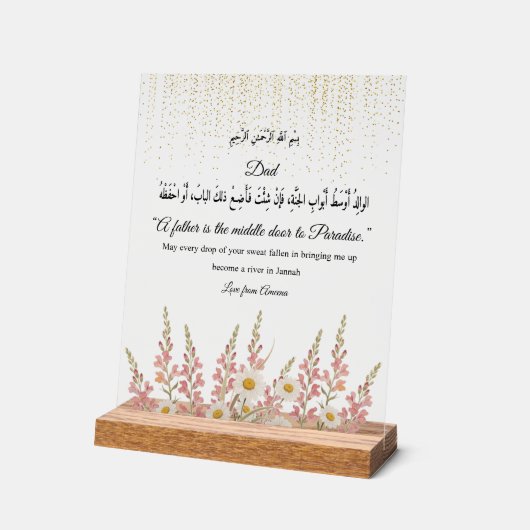 بِسْمِ ٱللَّٰهِ ٱلرَّحْمَٰنِ ٱلرَّحِيمِ
Dad
الوالِدُ أَوْسَطُ أَبْوابِ الجَنَّةِ، فَإِنْ شِئْتَ فَأَضِعْ ذلكَ البابَ، أَو احْفَظْهُ
“A father is the middle door to Paradise.”
May every drop of your sweat fallen in bringing me up
become a river in Jannah
Love from Ameena